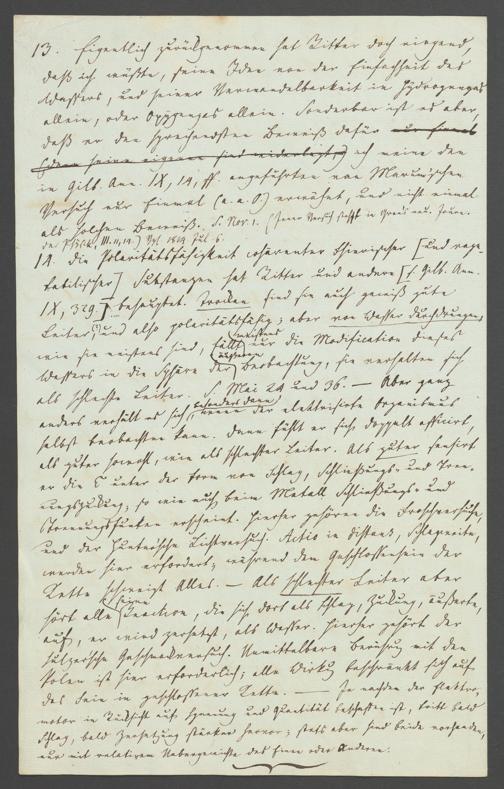 13. Eigentlich zurückgenommen hat Ritter doch nirgend,
daß ich wüßte, seine Ideen von der Einfachheit des
Wassers, und seiner Verwandelbarkeit in Hydrogengas
allein, oder Oxygengas allein. Sonderbar ist es aber,
daß er den sprechendsten Beweiß dafür nur Einmal
(denn seine eigenen sind widerlegt,) ich meine den
in Gilb. Ann. IX, 14, ff. angeführten von Marum'schen
Versuch nur Einmal (a. a. O.) erwähnt, und nicht einmal
als solchen Beweiß. S. Nov. 1.
der Physik, III. 11, 14.) Vgl. 1819 Jul 6.
14. Die Polaritätsfähigkeit cohärenter thierischer [und vege-
tabilischer] Substanzen hat Ritter und andere [s. Gilb. Ann.
IX, 329.] behauptet. Trocken sind sie auch gewiß gute
Leiter, und also polaritätsfähig; aber von Wasser durchdrungen,
wie sie meistens sind, fällt nur die Modification dieses
Wassers in die Sphäre der Beobachtung, sie verhalten sich
als schlechte Leiter. S. Mai 24 und 36. — Aber ganz
anders verhält es sich, besonders dann wenn der elektrisirte Organismus
selbst beobachten kann. Dann fühlt er sich doppelt afficirt,
als guter sowohl, wie als schlechter Leiter. Als guter sensirt
er die E unter der Form von Schlag, Schließungs- und Tren-
nungszukung, so wie auch beim Metall Schließungs- und
Trennungsfunken erscheint. Hierher gehören die Froschversuche,
und der Huntersche Lichtversuch. Actio in distans, Schlagweite,
werden hier erfordert; während dem Geschlossensein der
Kette schweigt Alles. — Als schlechter Leiter aber
hört alle seine Reaction, die sich dort als Schlag, Zukung, äußerte,
auf, er wird zersetzt, als Wasser. Hierher gehört der
Sulzer'sche Geschmacksversuch. Unmittelbare Berührung mit den
Polen ist hier erforderlich; alle Wirkung beschränkt sich auf
das Sein in geschlossener Kette. — Je nachdem der Elektro-
motor in Rücksicht auf Spannung und Quantität beschaffen ist, tritt bald
Schlag, bald Zersetzung stärker hervor; stets aber sind beide vorhanden,
nur mit relativem Uebergewichte des Einen oder Anderen.